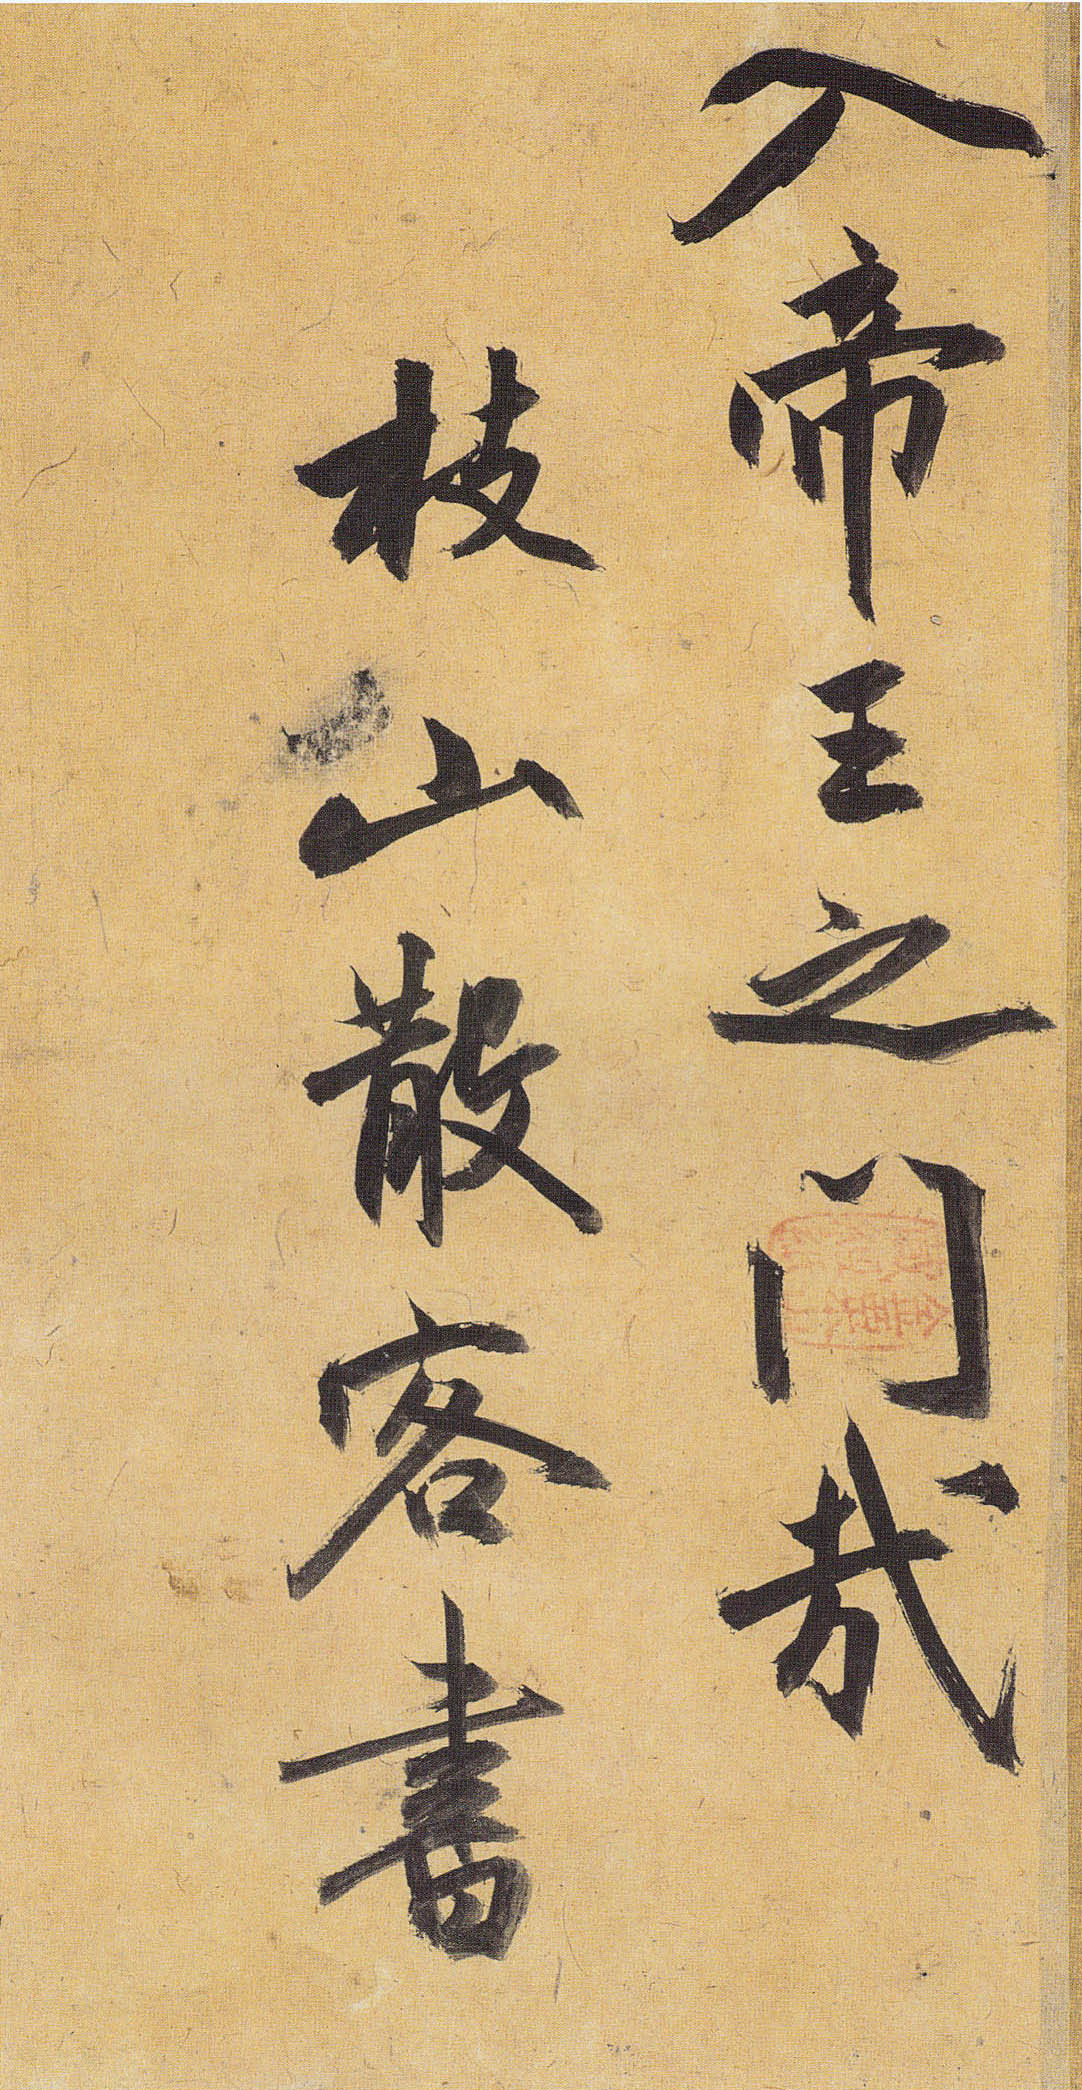 入帝王之門哉
枝山散客書